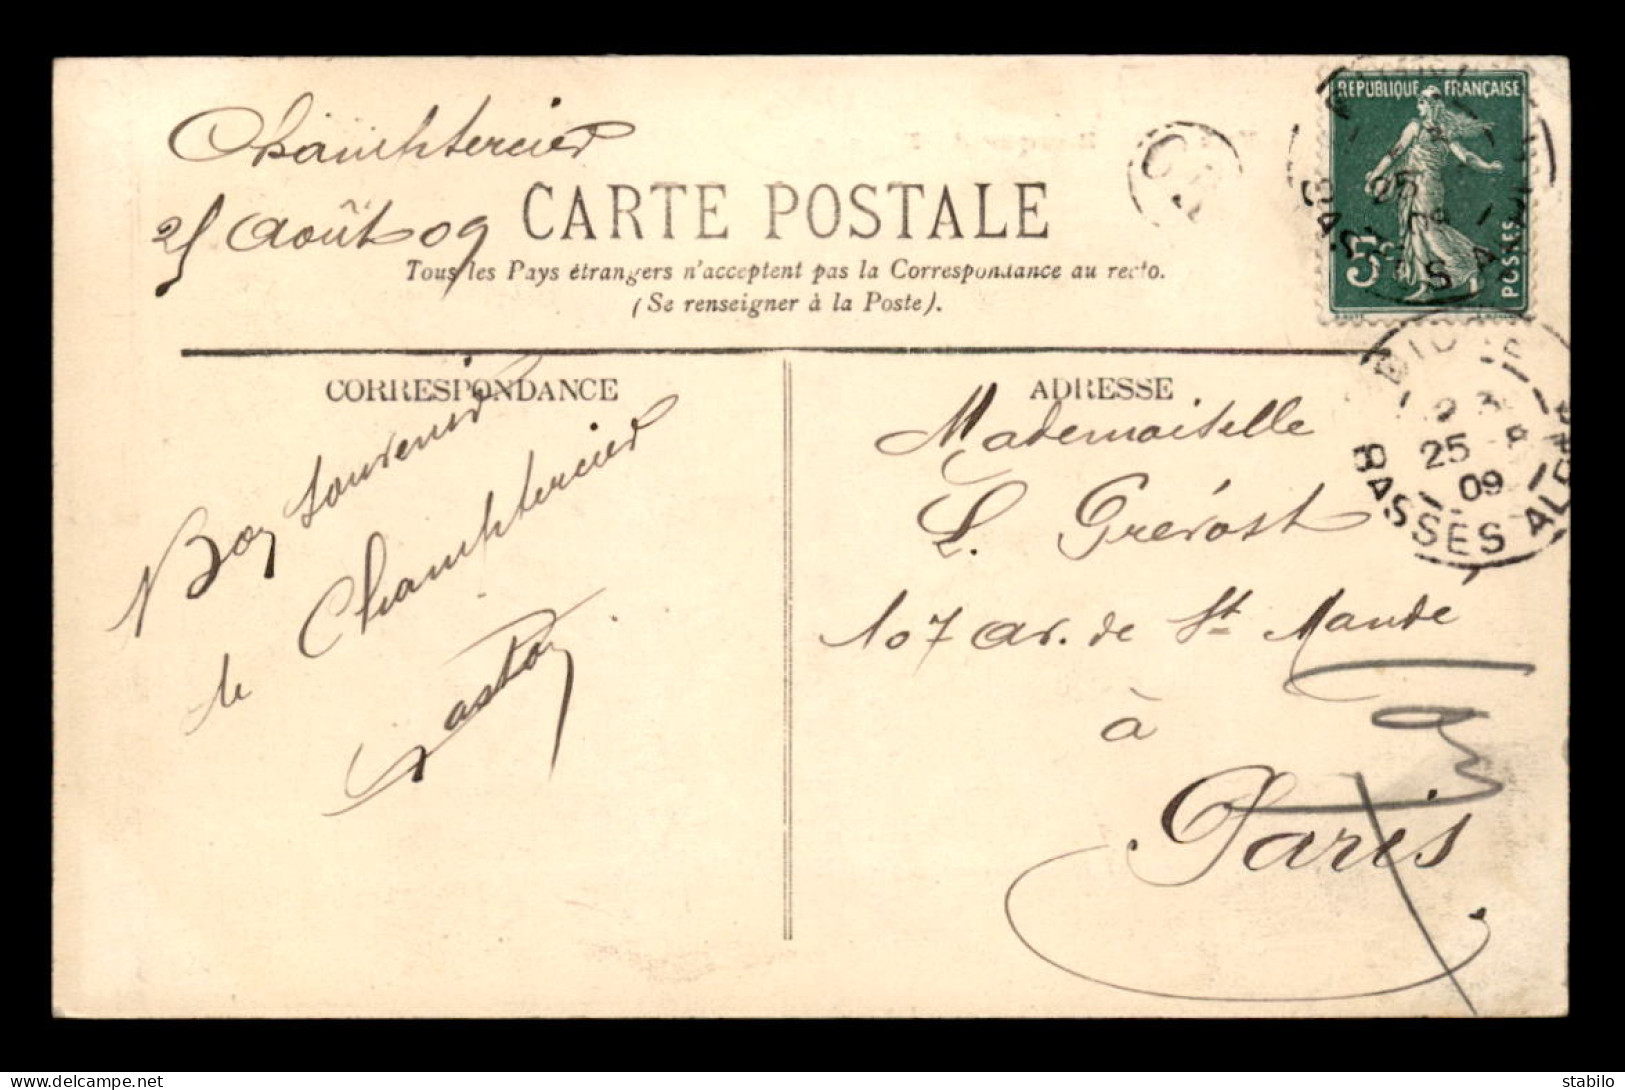 Champtercier
25 Août 09
CARTE POSTALE
Tous les Pays étrangers n'acceptent pas la Correspondance au recto.
(Se renseigner à la Poste).
REPUBLIQUE FRANÇAISE
5c
POSTES
CORRESPONDANCE
Bon souvenir
de Champtercier
Gaston
ADRESSE
Mademoiselle
L. Prévost
107 av. de St Mandé
à
Paris
25
09
BASSES ALPES
delcampe.net
stabilo